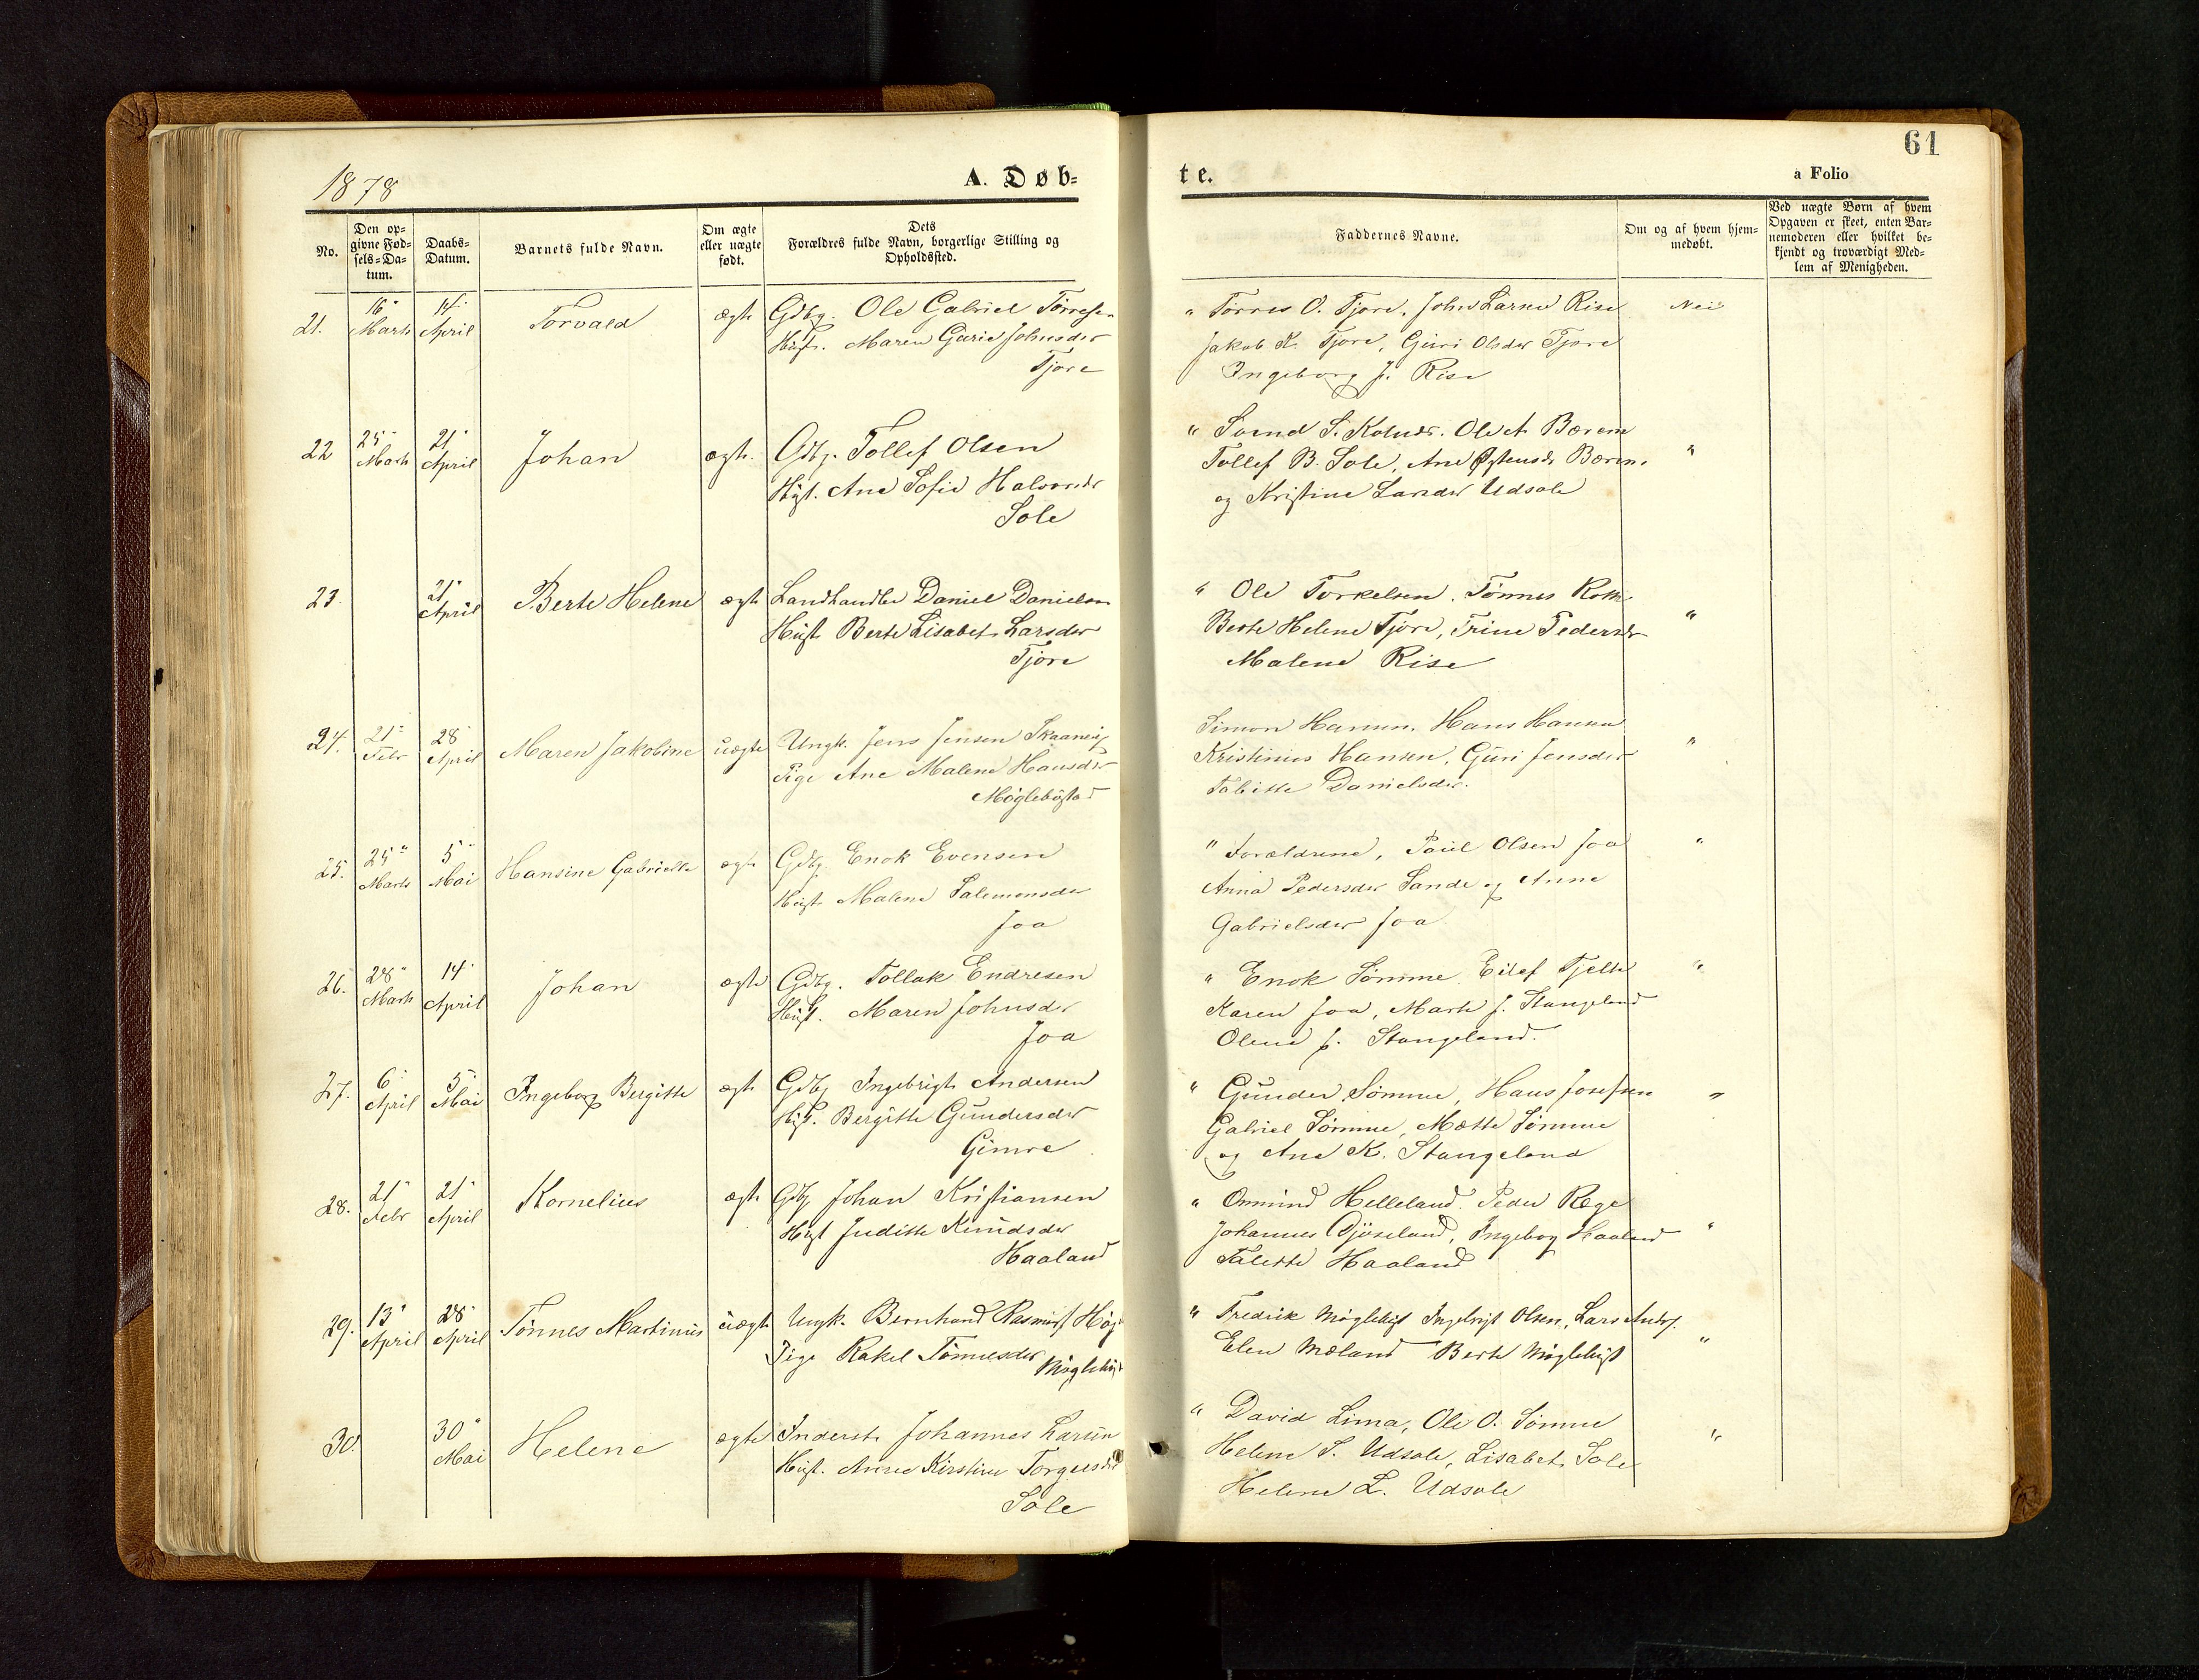 61
1878
A. Døb-
te.
a Folio
No.
Den op-
givne Fød-
sels-Da-
tum.
Daabs-
Datum.
Barnets fulde Navn.
Om ægte
eller uægte
født.
Dets
Forældres fulde Navn, borgerlige Stilling og
Opholdssted.
Faddernes Navne.
Om og af hvem hjem-
medøbt.
Ved uægte Børn af hvem
Opgaven er skeet, enten Bar-
nemoderen eller hvilket be-
kjendt og troværdigt Med-
lem af Menigheden.
21.
16"
Marts
14"
April
Torvald
ægte
Gdbg. Ole Gabriel Tørresen
Hust. Maren Gurie Johnsdr
Tjore
" Tørres O. Tjore, John Larsen Rise
Jakob K. Tjore, Guri Olsdr Tjore
Ingeborg J. Rise
Nei
22
25"
Marts
21"
April
Johan
ægte
Gdbg. Tollef Olsen
Hust. Ane Sofie Halvorsdr
Sole
" Svend S. Kolnes. Ole A. Bærem
Tollef B. Sole, Ane Østensdr Bærem.
og Kristine Larsdr Udsole
"
23.
21"
April
Berte Helene
ægte
Landhandler Daniel Danielsen
Hust Berte Lisabet Larsdr
Tjore
" Ole Torkelsen. Tønnes Roth
Berte Helene Tjore, Trine Pedersdr
Malene Rise
"
24.
21"
Febr
28
April
Maren Jakobine
uægte
Ungk. Jens Jensen Skaanevig
Pige Ane Malene Hansdr
Møglebøstad
Simon Hansen. Hans Hansen
Kristinius Hansen, Guri Jensdr
Tabitte Danielsdr.
"
25.
25"
Marts
5"
Mai
Hansine Gabrielle
ægte
Gdbg. Enok Evensen
Hust. Malene Salemonsdr
Joa
" Forældrene, Paul Olsen Joa
Anna Pedersdr Sande og Anne
Gabrielsdr Joa
"
26.
28"
Marts
14"
April
Johan
ægte
Gdbg. Tollak Endresen
Hust. Maren Johnsdr
Joa
" Enok Sømme. Eilef Tjelte
Karen Joa, Marte J. Stangeland
Olene J. Stangeland.
"
27.
6"
April
5"
Mai
Ingeborg Bergitte
ægte
Gdbg Ingebrigt Andersen
Hust. Bergitte Gundersdr
Gimre
" Gunder Sømme, Hans Josefsen
Gabriel Sømme, Mette Sømme
og Ane K. Stangeland
"
28.
21"
Febr
21"
April
Kornelius
ægte
Gdbg Johan Kristiansen
Hust Juditte Knudsdr
Haaland
" Ommund Helleland. Peder Rege
Johannes Gjøseland, Ingeborg Haaland
Talette Haaland
"
29.
13"
April
28"
April
Tønnes Martinius
uægte
Ungk. Bernhard Rasmuss Høg
Pige Rakel Tønnesdr Møglebøst
" Fredrik Møglebøst Ingebrigt Olsen, Lars Anders.
Elen Mæland Berte Møglebøst
"
30.
30"
Mai
Helene
ægte
Inderst. Johannes Larsen
Hust. Anne Kirstine Torgersdr
Sole
" David Lima, Ole O. Sømme
Helene S. Udsole, Lisabet Sole
Helene L. Udsole
"